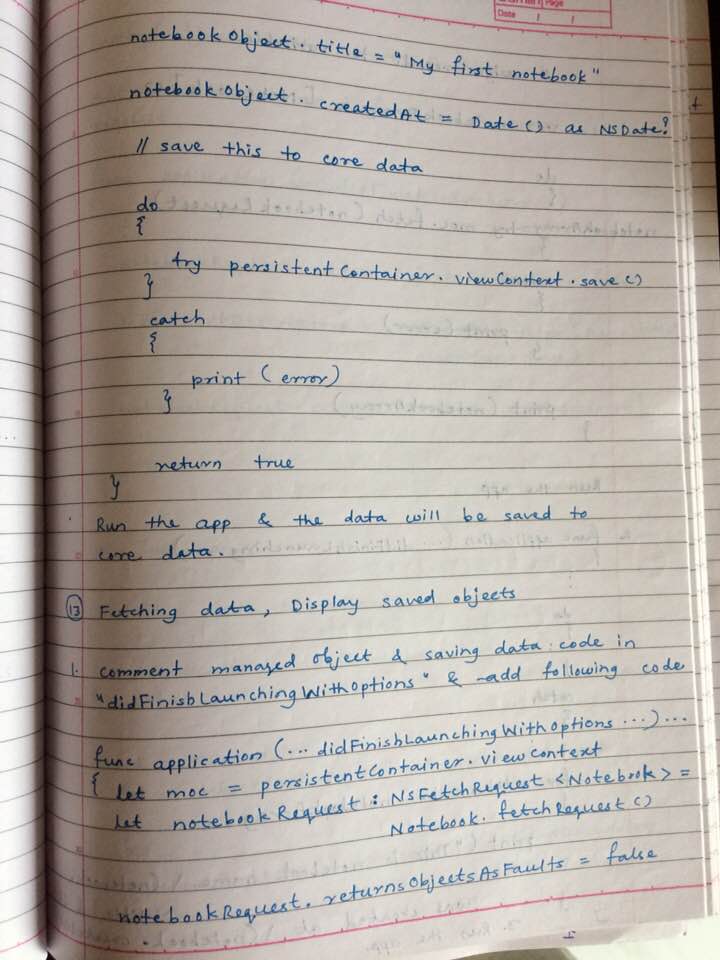 Page
Date / /
notebookObject. title = "My first notebook"
notebookObject. createdAt = Date() as NSDate?
// save this to core data
do
{
try persistentContainer. viewContext. save()
}
catch
{
print (error)
}
return true
}
Run the app & the data will be saved to
core data.
13 Fetching data, Display saved objects
1. comment managed object & saving data code in
"didFinishLaunchingWithOptions" & add following code
func application (... didFinishLaunchingWithOptions ...) ...
{ let moc = persistentContainer. viewContext
let notebookRequest : NSFetchRequest <Notebook> =
Notebook. fetchRequest()
notebookRequest. returnsObjectsAsFaults = false